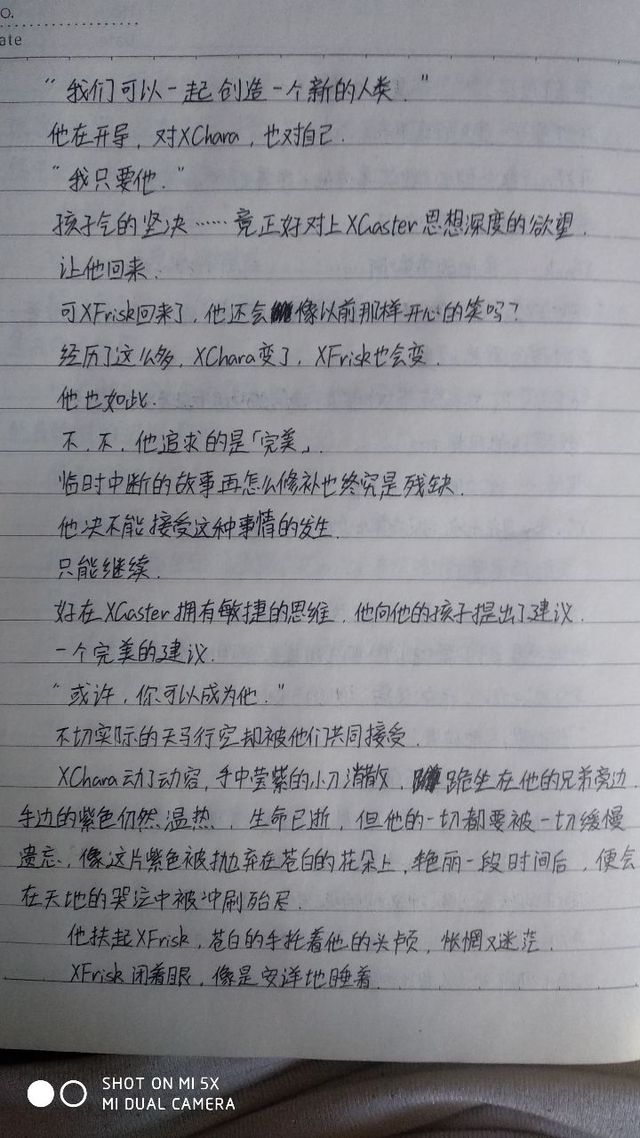 O.
ate
“我们可以一起创造一个新的人类.”
他在开导，对XChara，也对自己.
“我只要他.”
孩子气的坚决……竟正好对上XGaster思想深度的欲望.
让他回来.
可XFrisk回来了，他还会像以前那样开心的笑吗？
经历了这么多，XChara变了，XFrisk也会变.
他也如此.
不，不，他追求的是「完美」.
临时中断的故事再怎么修补也终究是残缺.
他决不能接受这种事情的发生.
只能继续.
好在XGaster拥有敏捷的思维，他向他的孩子提出了建议.
一个完美的建议.
“或许，你可以成为他.”
不切实际的天马行空却被他们共同接受.
XChara动了动容，手中莹紫的小刀消散，跪坐在他的兄弟旁边.
手边的紫色仍然温热，生命已逝，但他的一切都要被一切缓慢
遗忘，像这片紫色被抛弃在苍白的花朵上，艳丽一段时间后，便会
在天地的哭泣中被冲刷殆尽.
他扶起XFrisk，苍白的手托着他的头颅，怅惘又迷茫.
XFrisk闭着眼，像是安详地睡着.
SHOT ON MI 5X
MI DUAL CAMERA